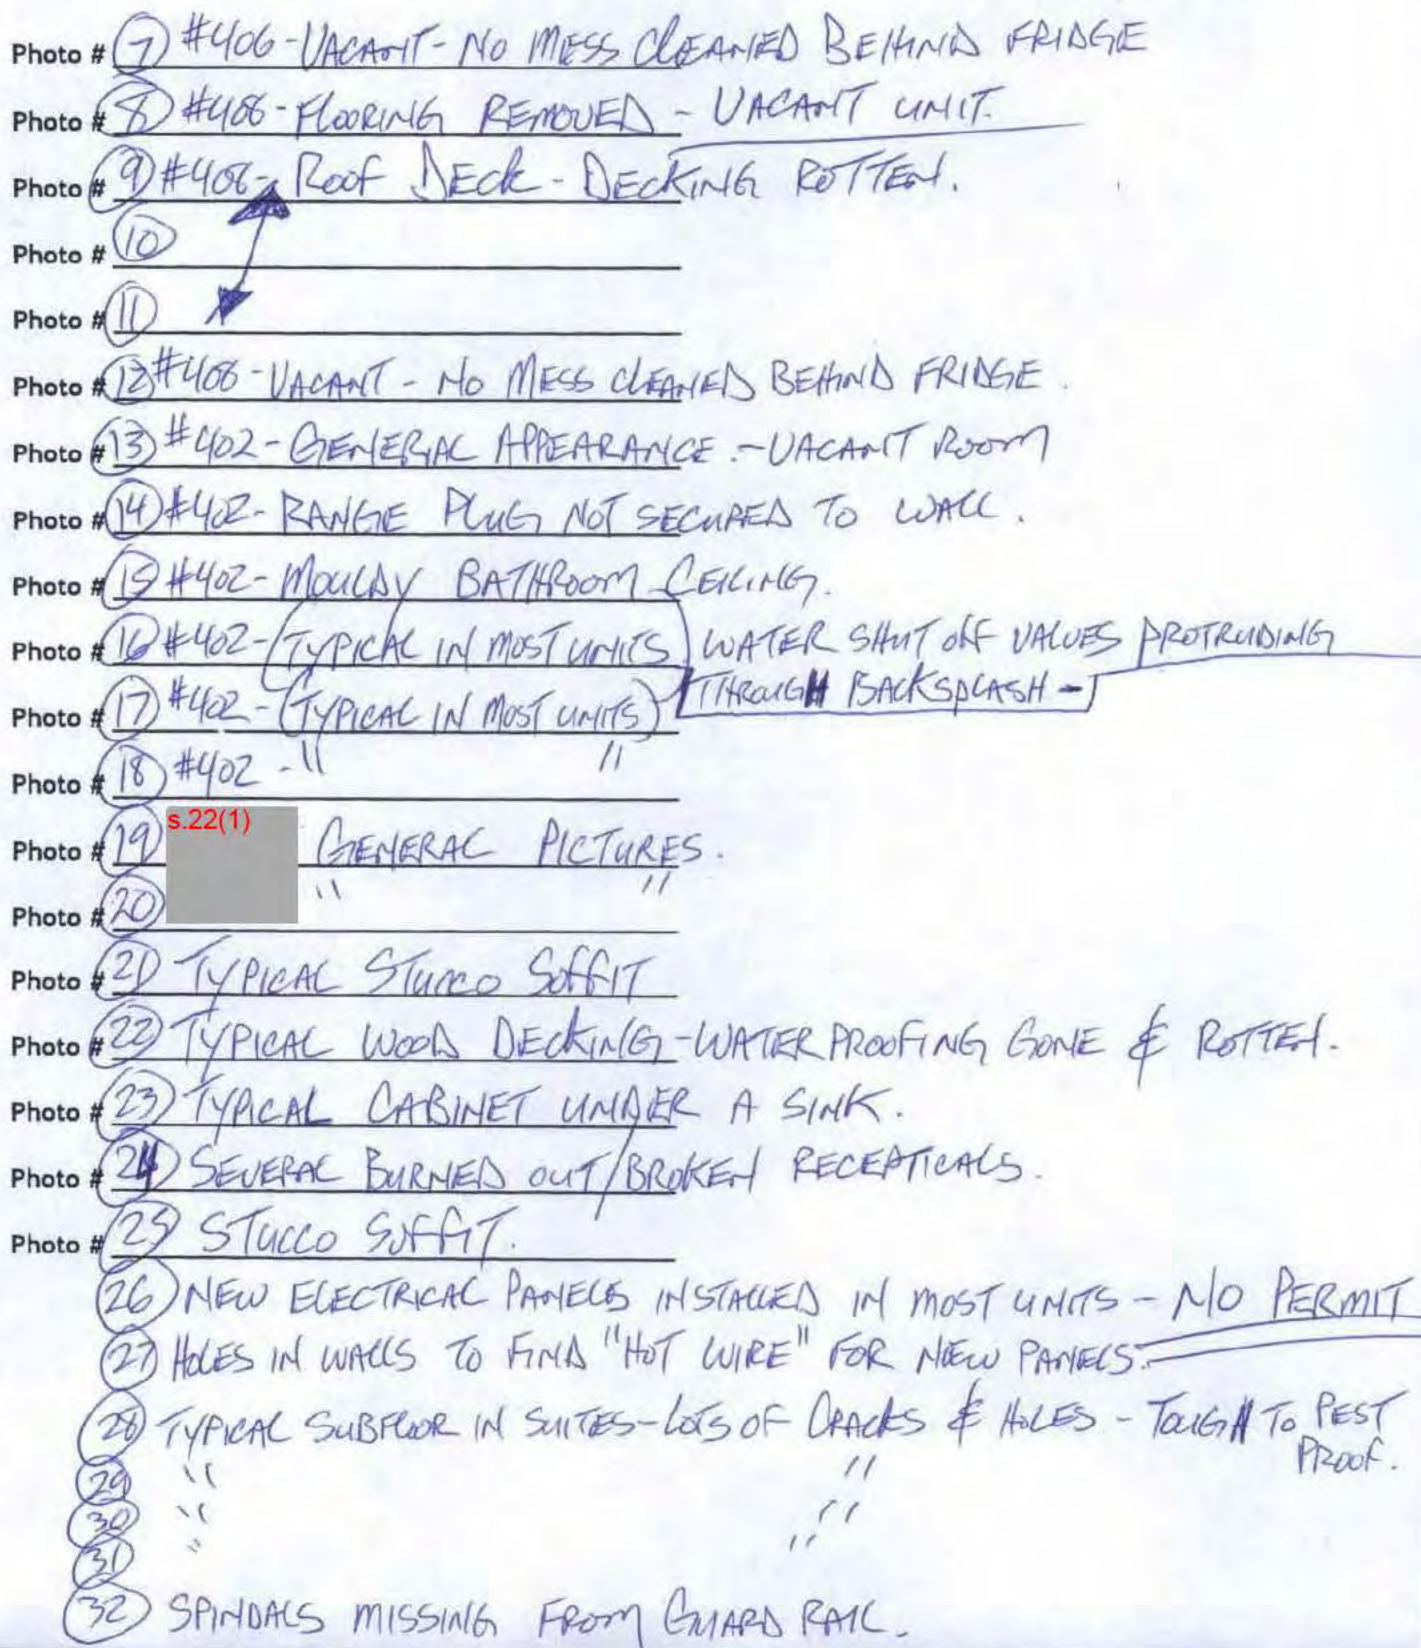 Photo # 7 #406 - VACANT - NO MESS CLEANED BEHIND FRIDGE
Photo # 8 #408 - FLOORING REMOVED - VACANT UNIT.
Photo # 9 #408 - ROOF DECK - DECKING ROTTEN.
Photo # 10
Photo # 11
Photo # 12 #408 - VACANT - NO MESS CLEANED BEHIND FRIDGE.
Photo # 13 #402 - GENERAL APPEARANCE. - VACANT ROOM
Photo # 14 #402 - RANGE PLUG NOT SECURED TO WALL.
Photo # 15 #402 - MOULDY BATHROOM CEILING.
Photo # 16 #402 - (TYPICAL IN MOST UNITS) WATER SHUT OFF VALUES PROTRUDING
THROUGH BACKSPLASH -
Photo # 17 #402 - (TYPICAL IN MOST UNITS)
Photo # 18 #402 - " "
Photo # 19 s.22(1) GENERAL PICTURES.
Photo # 20 " "
Photo # 21 TYPICAL STUCCO SOFFIT
Photo # 22 TYPICAL WOOD DECKING - WATER PROOFING GONE & ROTTEN.
Photo # 23 TYPICAL CABINET UNDER A SINK.
Photo # 24 SEVERAL BURNED OUT/BROKEN RECEPTICALS.
Photo # 25 STUCCO SOFFIT.
26 NEW ELECTRICAL PANELS INSTALLED IN MOST UNITS - NO PERMIT
27 HOLES IN WALLS TO FIND "HOT WIRE" FOR NEW PANELS.
28 TYPICAL SUBFLOOR IN SUITES - LOTS OF CRACKS & HOLES - TOUGH TO PEST
PROOF.
29 " "
30 " "
31 " "
32 SPINDALS MISSING FROM GUARD RAIL.